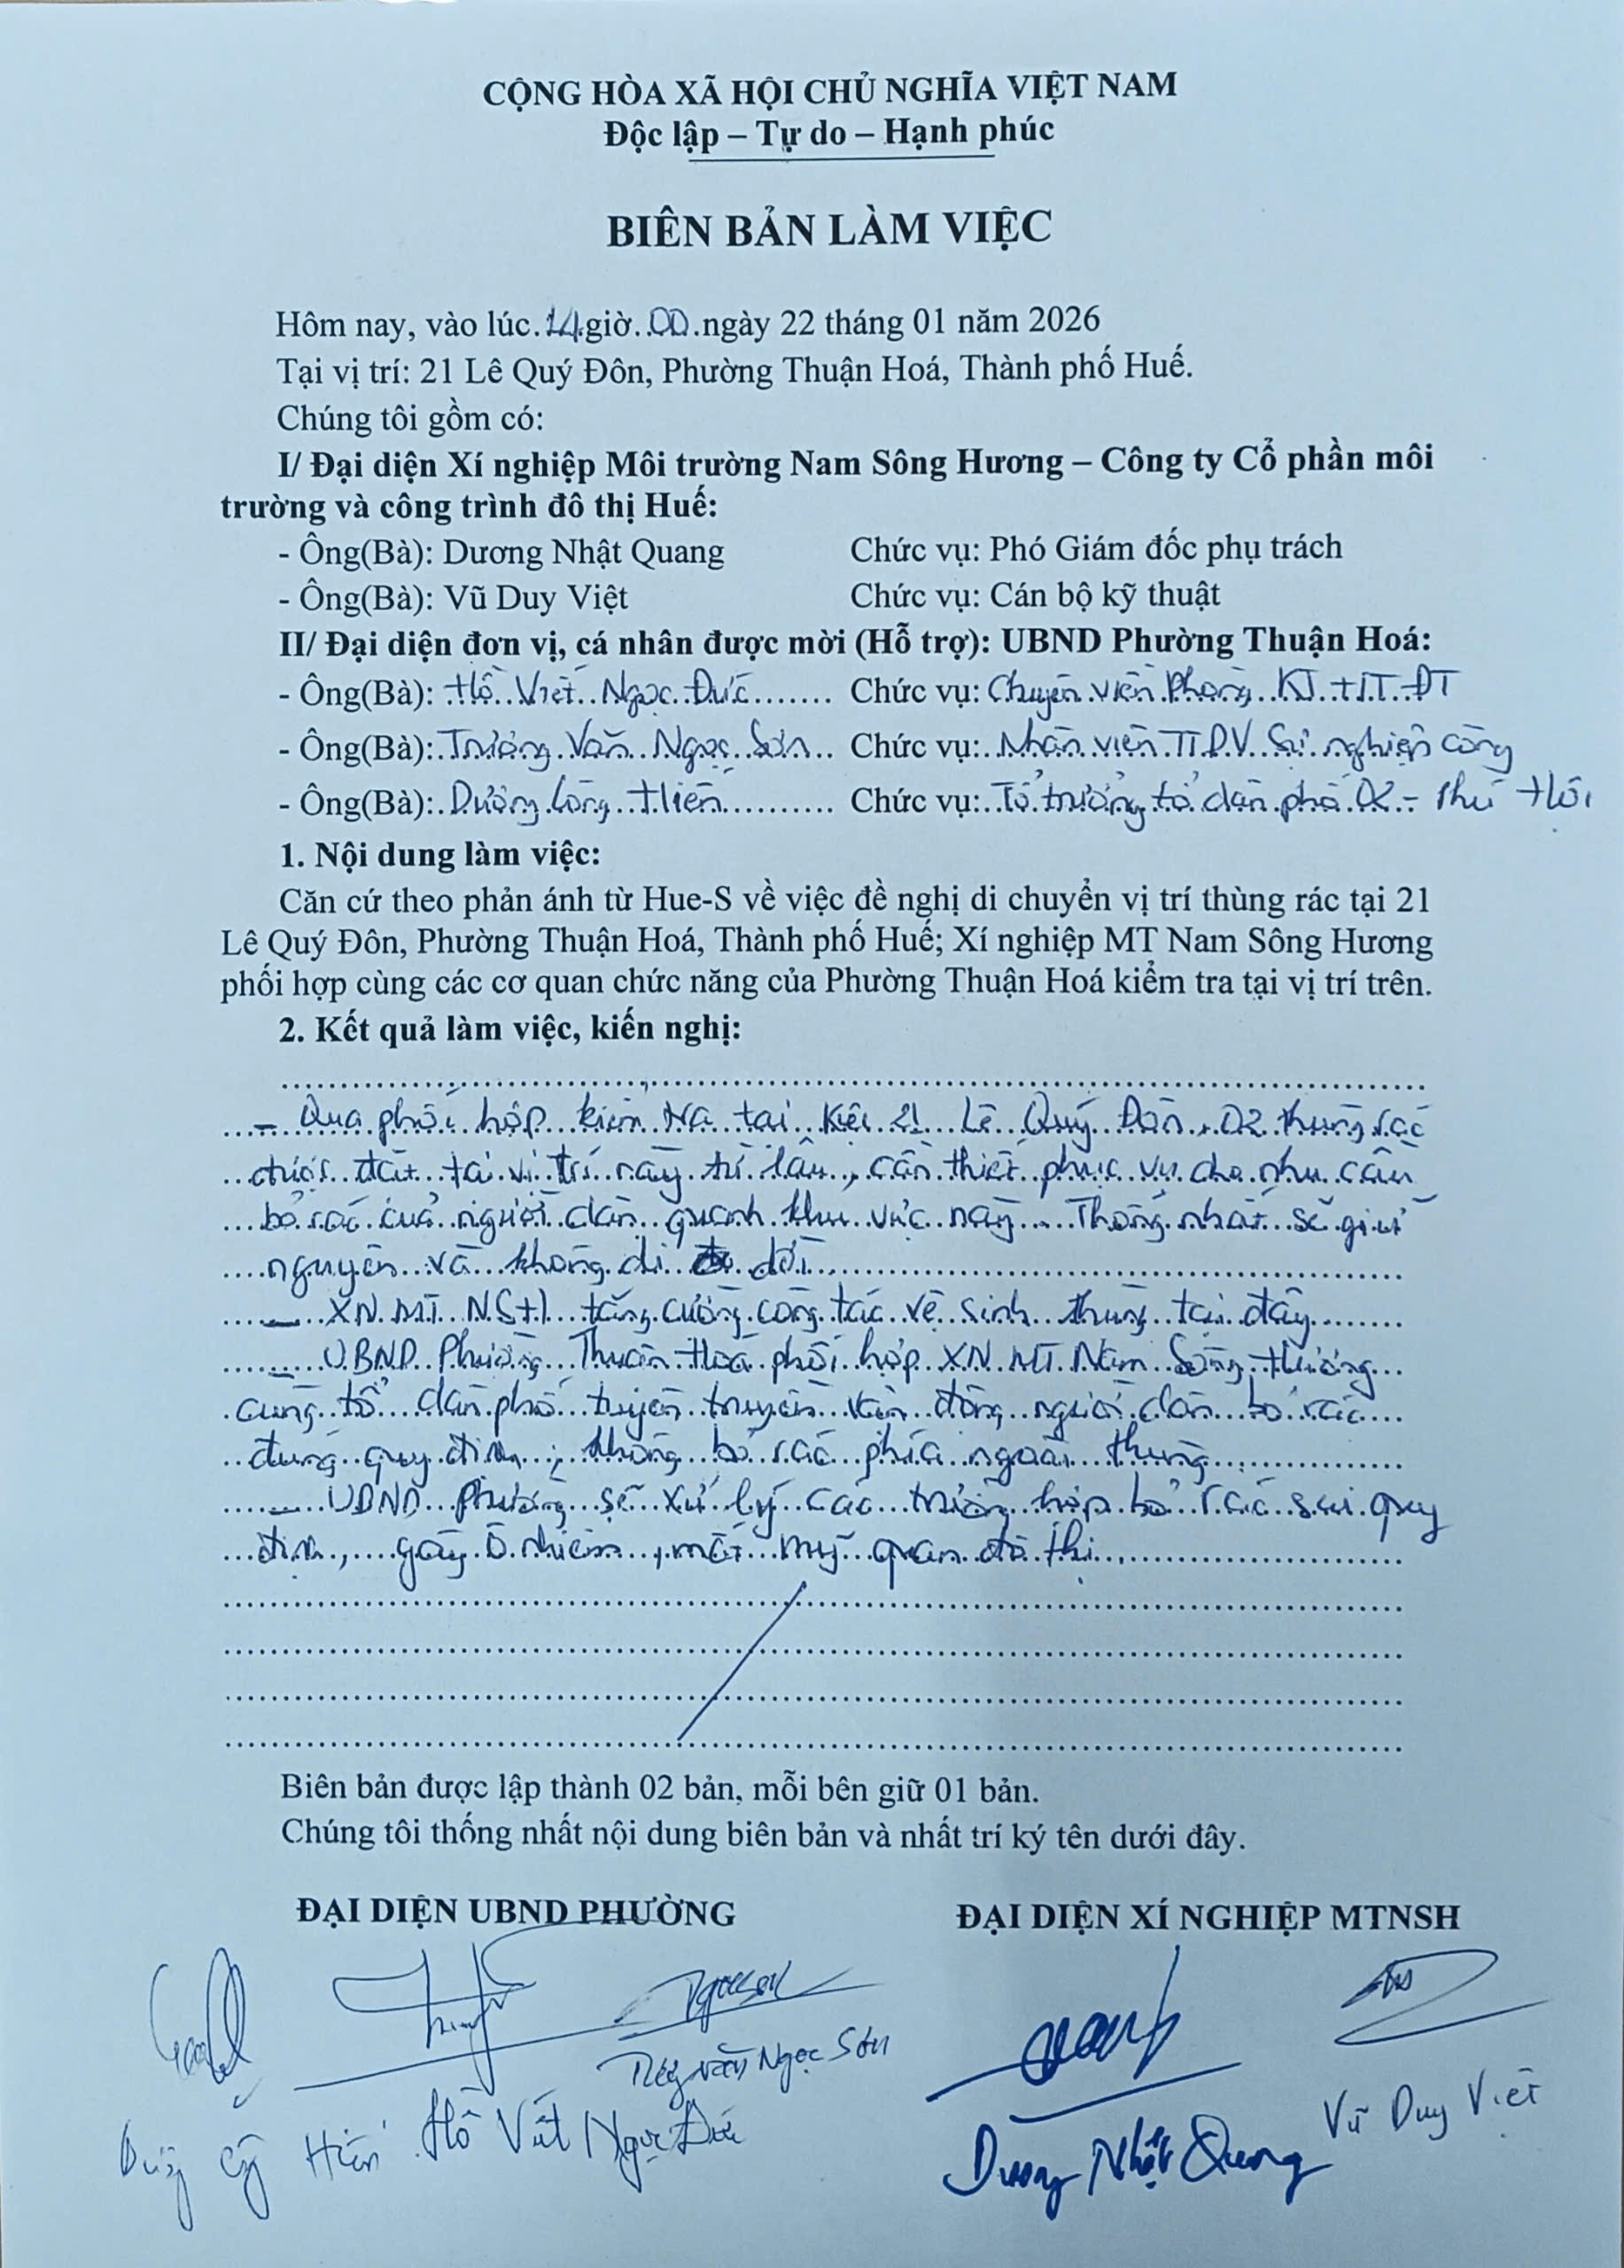 CỘNG HÒA XÃ HỘI CHỦ NGHĨA VIỆT NAM
Độc lập – Tự do – Hạnh phúc
BIÊN BẢN LÀM VIỆC
Hôm nay, vào lúc.14.giờ..00.ngày 22 tháng 01 năm 2026
Tại vị trí: 21 Lê Quý Đôn, Phường Thuận Hoá, Thành phố Huế.
Chúng tôi gồm có:
I/ Đại diện Xí nghiệp Môi trường Nam Sông Hương – Công ty Cổ phần môi
trường và công trình đô thị Huế:
- Ông(Bà): Dương Nhật Quang Chức vụ: Phó Giám đốc phụ trách
- Ông(Bà): Vũ Duy Việt Chức vụ: Cán bộ kỹ thuật
II/ Đại diện đơn vị, cá nhân được mời (Hỗ trợ): UBND Phường Thuận Hoá:
- Ông(Bà): Hồ Viết Ngọc Đức Chức vụ: Chuyên viên Phòng KT HT ĐT
- Ông(Bà): Trương Văn Ngọc Sơn Chức vụ: Nhân viên TTDV Sự nghiệp công
- Ông(Bà): Dương Công Hiền Chức vụ: Tổ trưởng tổ dân phố 02 - Phú Hội
1. Nội dung làm việc:
Căn cứ theo phản ánh từ Hue-S về việc đề nghị di chuyển vị trí thùng rác tại 21
Lê Quý Đôn, Phường Thuận Hoá, Thành phố Huế; Xí nghiệp MT Nam Sông Hương
phối hợp cùng các cơ quan chức năng của Phường Thuận Hoá kiểm tra tại vị trí trên.
2. Kết quả làm việc, kiến nghị:
- Qua phối hợp kiểm tra tại kiệt 21 Lê Quý Đôn, 02 thùng rác
được đặt tại vị trí này từ lâu, cần thiết phục vụ cho nhu cầu
bỏ rác của người dân quanh khu vực này. Thống nhất sẽ giữ
nguyên và không di dời.
- XN.MT.NSH tăng cường công tác vệ sinh thùng tại đây
- UBND Phường Thuận Hoá phối hợp XN MT Nam Sông Hương
cùng tổ dân phố tuyên truyền vận động người dân bỏ rác
đúng quy định, không bỏ rác phía ngoài thùng.
- UBND Phường sẽ xử lý các trường hợp bỏ rác sai quy
định, gây ô nhiễm, mất mỹ quan đô thị.
Biên bản được lập thành 02 bản, mỗi bên giữ 01 bản.
Chúng tôi thống nhất nội dung biên bản và nhất trí ký tên dưới đây.
ĐẠI DIỆN UBND PHƯỜNG ĐẠI DIỆN XÍ NGHIỆP MTNSH
Văn Ngọc Sơn
Hồ Viết Ngọc Đức Vũ Duy Việt
Dương Nhật Quang